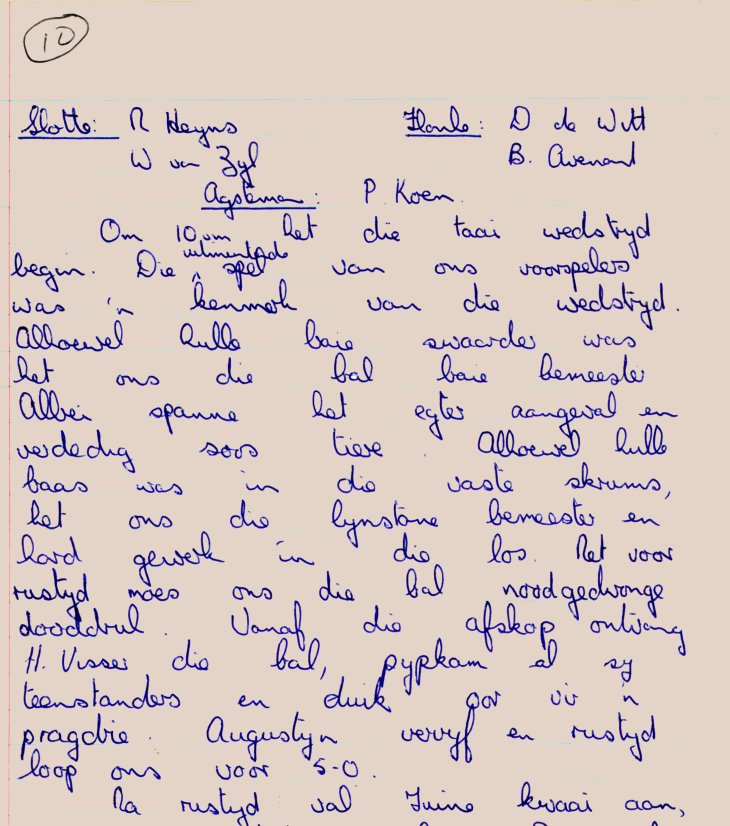 10
Slotte: R Heyns Flanke: D de Witt
W van Zyl B. Avenant
Agsteman: P. Koen.
Om 10 vm het die taai wedstryd
uitmuntende
begin. Die ^ spel van ons voorspelers
was 'n kenmerk van die wedstryd.
Alhoewel hulle baie swaarder was
het ons die bal baie bemeester
Albei spanne het egter aangeval en
verdedig soos tiere. Alhoewel hulle
baas was in die vaste skrums,
het ons die lynstane bemeester en
hard gewerk in die los. Net voor
rustyd moes ons die bal noodgedwonge
dooddruk. Vanaf die afskop ontvang
H. Visser die bal, pypkan al sy
teenstanders en duik oor vir 'n
pragdrie. Augustyn vervyf en rustyd
loop ons voor 5-0.
Na rustyd val Irene kwaai aan,